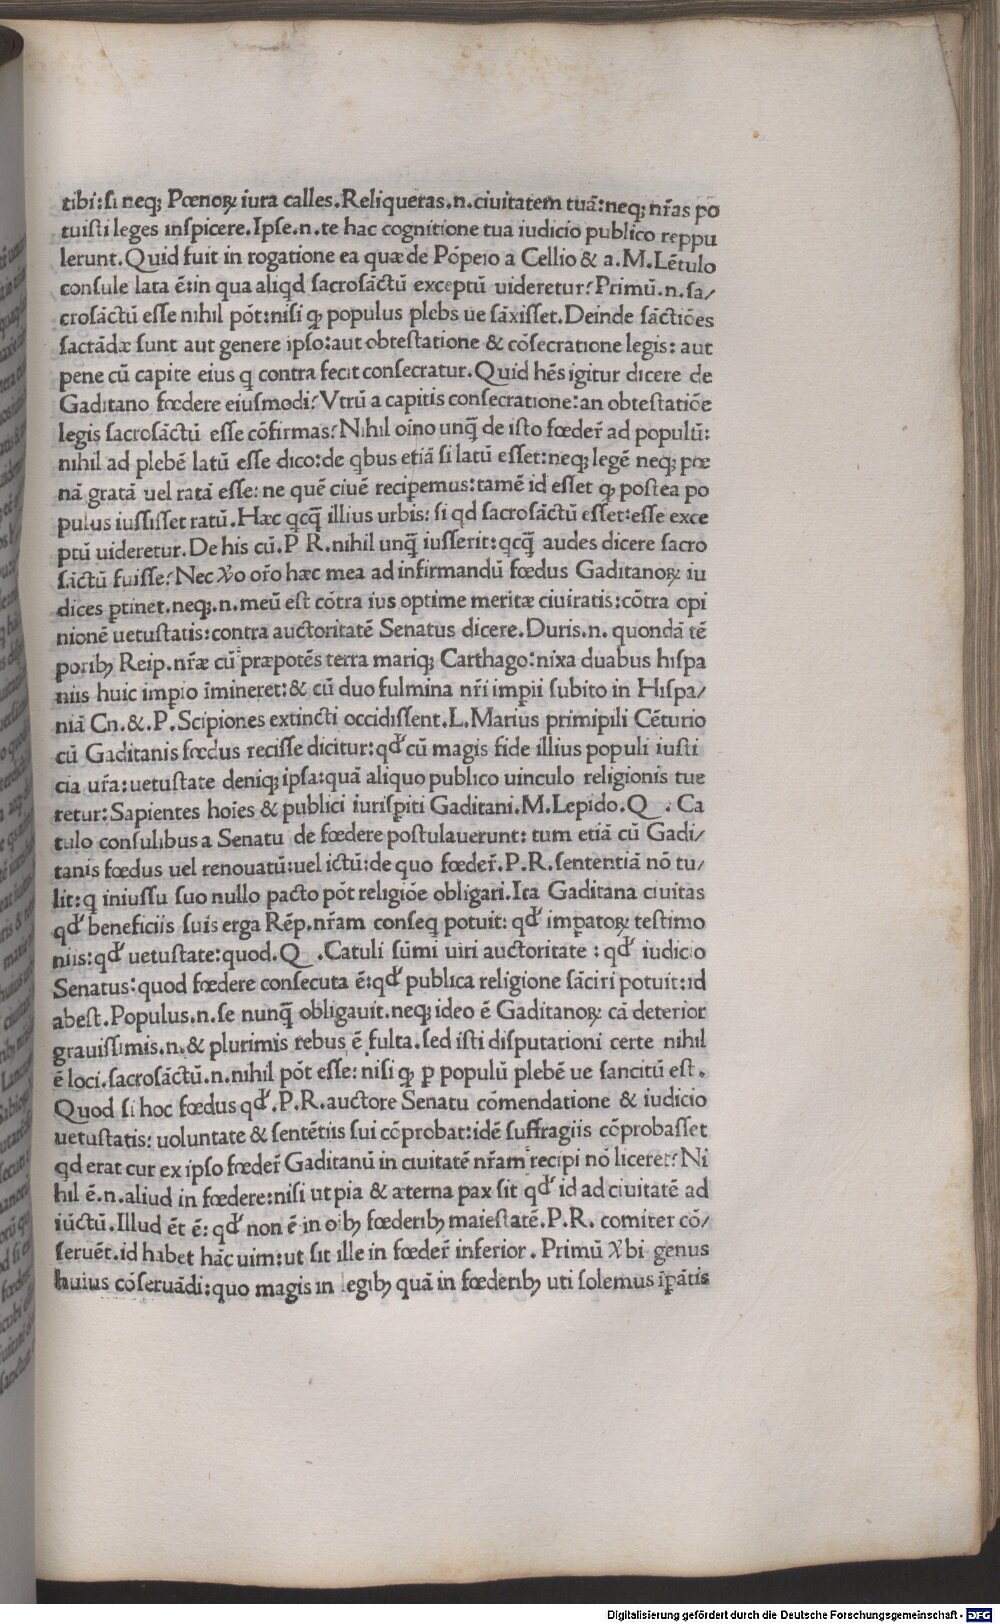 tibi:ſi neqꝫ Pœnoꝝ iura calles.Reliqueras.n.ciuitatem tuā:neqꝫ nr̃as po
tuiſti leges inſpicere.Ipſe.n.te hac cognitione tua iudicio publico reppu
lerunt.Quid fuit in rogatione ea quæ de Pōpeio a Cellio & a.M.Lētulo
conſule lata ē:in qua aliqd ſacroſāctū exceptū uideretur?Primū.n.ſa/
croſāctū eſſe nihil pōt:niſi ꝙ populus plebs ue ſāxiſſet.Deinde ſāctiōes
ſacrādæ ſunt aut genere ipſo:aut obteſtatione & cōſecratione legis: aut
pene cū capite eius q contra fecit conſecratur.Quid hēs igitur dicere de
Gaditano fœdere eiuſmodi?Vtrū a capitis conſecratione:an obteſtatiōe
legis ſacroſāctū eſſe cōfirmas?Nihil oīno unq̄ de iſto fœder̃ ad populū:
nihil ad plebē latū eſſe dico:de qbus etiā ſi latū eſſet:neqꝫ legē neqꝫ pœ
nā gratā uel ratā eſſe: ne quē ciuē recipemus:tamē id eſſet ꝙ poſtea po
pulus iuſſiſſet ratū.Hæc qcq̄ illius urbis: ſi qd ſacroſāctū eſſet:eſſe exce
ptū uideretur.De his cū.P R.nihil unq̄ iuſſerit:qcq̄ audes dicere ſacro
ſāctū fuiſſe?Nec ꝟo or̃o hæc mea ad infirmandū fœdus Gaditanoꝝ iu
dices ꝑtinet.neqꝫ.n.meū eſt cōtra ius optime meritæ ciuiratis:cōtra opi
nionē uetuſtatis:contra auctoritatē Senatus dicere.Duris.n. quondā tē
poribꝫ Reip.nr̃æ cū præpotēs terra mariqꝫ Carthago:nixa duabus hiſpa
niis huic impio īmineret:& cū duo fulmina nr̃i impii ſubito in Hiſpa/
niā Cn.&.P.Scipiones extincti occidiſſent.L.Marius primipili Cēturio
cū Gaditanis fœdus reciſſe dicitur:qď cū magis fide illius populi iuſti
cia ur̃a:uetuſtate deniqꝫ ipſa:quā aliquo publico uinculo religionis tue
retur:Sapientes hoīes & publici iuriſꝑiti Gaditani.M.Lepido.Q . Ca
tulo conſulibus a Senatu de fœdere poſtulauerunt: tum etiā cū Gadi/
tanis fœdus uel renouatū:uel ictū:de quo fœder̃.P.R.ſententiā nō tu/
lit:q iniuſſu ſuo nullo pacto pōt religiōe obligari.Ita Gaditana ciuitas
qď beneficiis ſuis erga Rēp.nr̃am conſeq potuit: qď impatoꝝ teſtimo
niis:qď uetuſtate:quod.Q .Catuli ſūmi uiri auctoritate : qď iudicio
Senatus:quod fœdere conſecuta ē:qď publica religione ſāciri potuit:id
abeſt.Populus.n.ſe nunq̄ obligauit.neqꝫ ideo ē Gaditanoꝝ cā deterior
grauiſſimis.n.& plurimis rebus ē fulta.ſed iſti diſputationi certe nihil
ē loci.ſacroſāctū.n.nihil pōt eſſe: niſi ꝙ ꝑ populū plebē ue ſancitū eſt.
Quod ſi hoc fœdus qď.P.R.auctore Senatu cōmendatione & iudicio
uetuſtatis: uoluntate & ſentētiis ſui cōprobat:idē ſuffragiis cōprobaſſet
qd erat cur ex ipſo fœder̃ Gaditanū in ciuitatē nr̃am recipi nō liceret?Ni
hil ē.n.aliud in fœdere:niſi ut pia & æterna pax ſit qď id ad ciuitatē ad
iūctū.Illud ēt ē: qď non ē in oībꝫ fœderibꝫ maieſtatē.P.R. comiter cō/
ſeruēt.id habet hāc uim:ut ſit ille in fœder̃ inferior. Primū ꝟbi genus
huius cōſeruādi:quo magis in legibꝫ quā in fœderibꝫ uti ſolemus īꝑātis
Digitalisierung gefördert durch die Deutsche Forschungsgemeinschaft - DFG